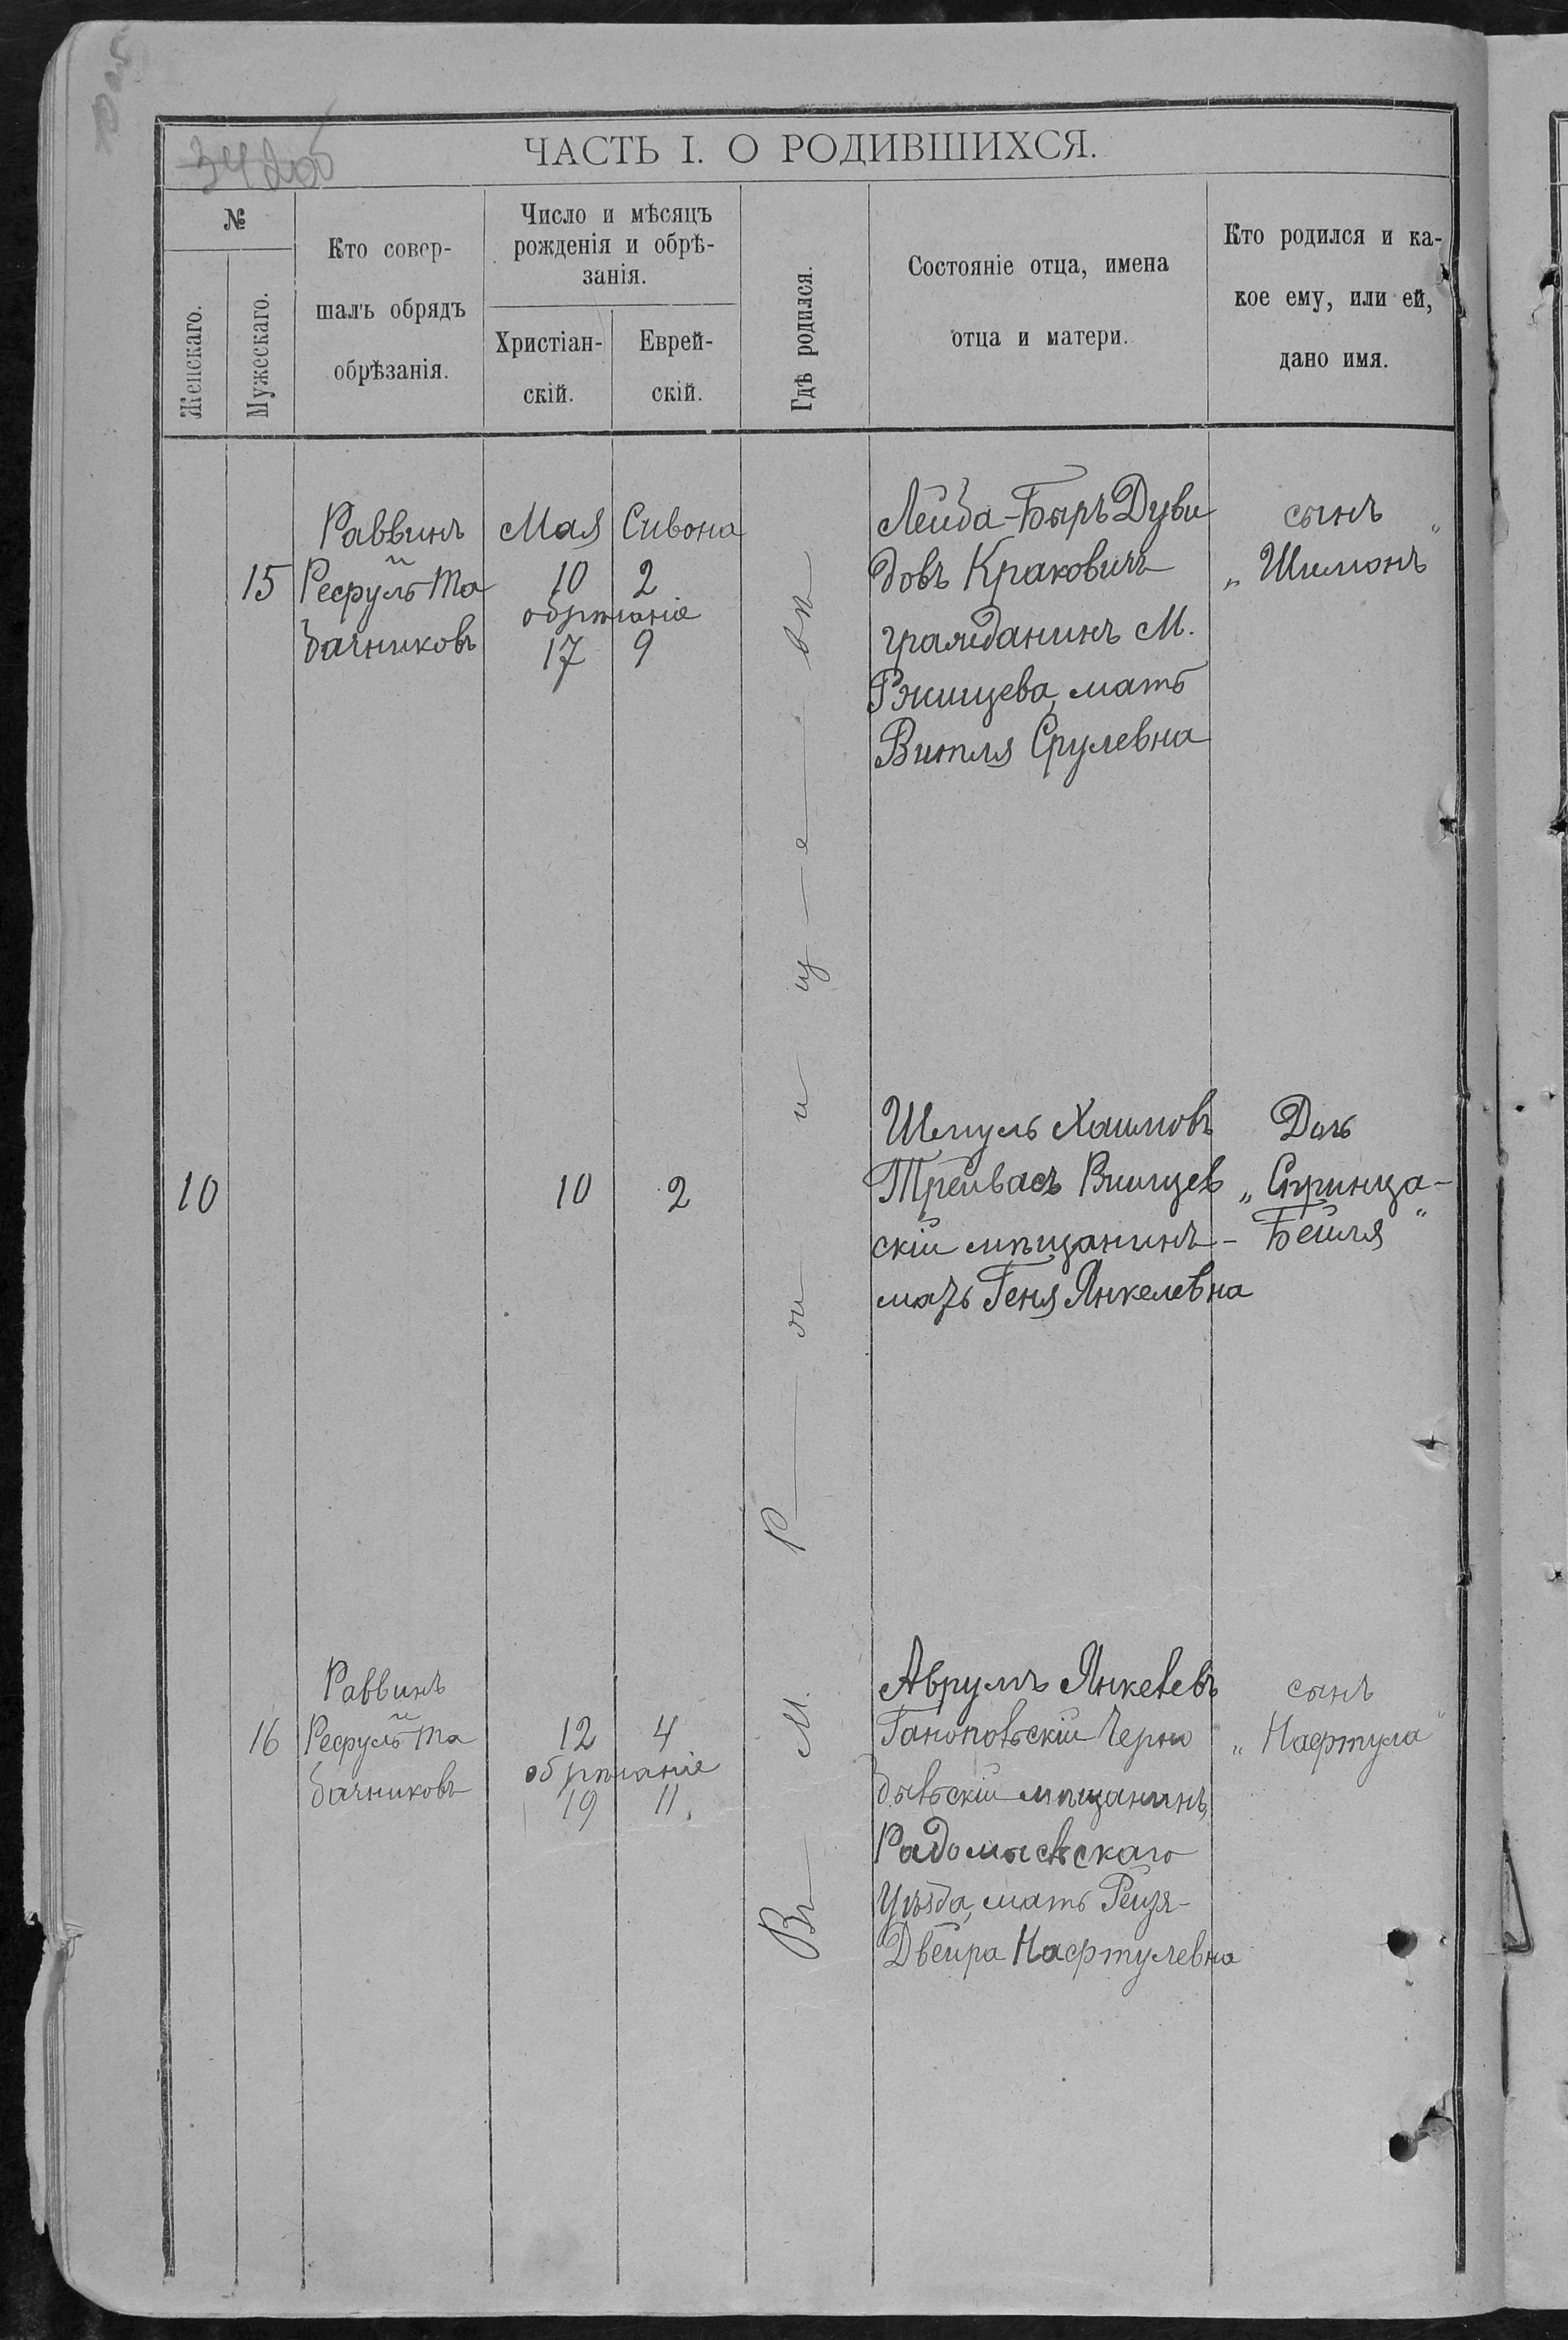 34 200
ЧАСТЬ I. О РОДИВШИХСЯ.
№
Женскаго.
Мужескаго.
Кто совер-
шалъ обрядъ
обрѣзанія.
Число и мѣсяцъ
рожденія и обрѣ-
занія.
Христіан-
скій.
Еврей-
скій.
Гдѣ родился.
Состояніе отца, имена
отца и матери.
Кто родился и ка-
кое ему, или ей,
дано имя.
15
Раввинъ
Рефулъ Та
бачниковъ
Мая Сивона
10 2
обрѣзаніе
17 9
Лейба-Беръ Дуви
довъ Краковичъ
гражданинъ М.
Ржищева, мать
Витля Срулевна
сынъ
„Шимонъ"
10
10 2
Шмуль Хаимовъ
Трейвасъ Ржищев
скій мѣщанинъ-
мать Геня Янкелевна
Дочь
„Сприңца-
Бейля"
16
Раввинъ
Рефулъ Та
бачниковъ
12 4
обрѣзаніе
19 11.
Аврумъ Янкелевъ
Ганопольскій Черно
быльскій мѣщанинъ,
Радомысльскаго
Уѣзда, мать Рейзя-
Двейра Нафтулевна
сынъ
„Нафтула"
Въ М. Ржищевѣ